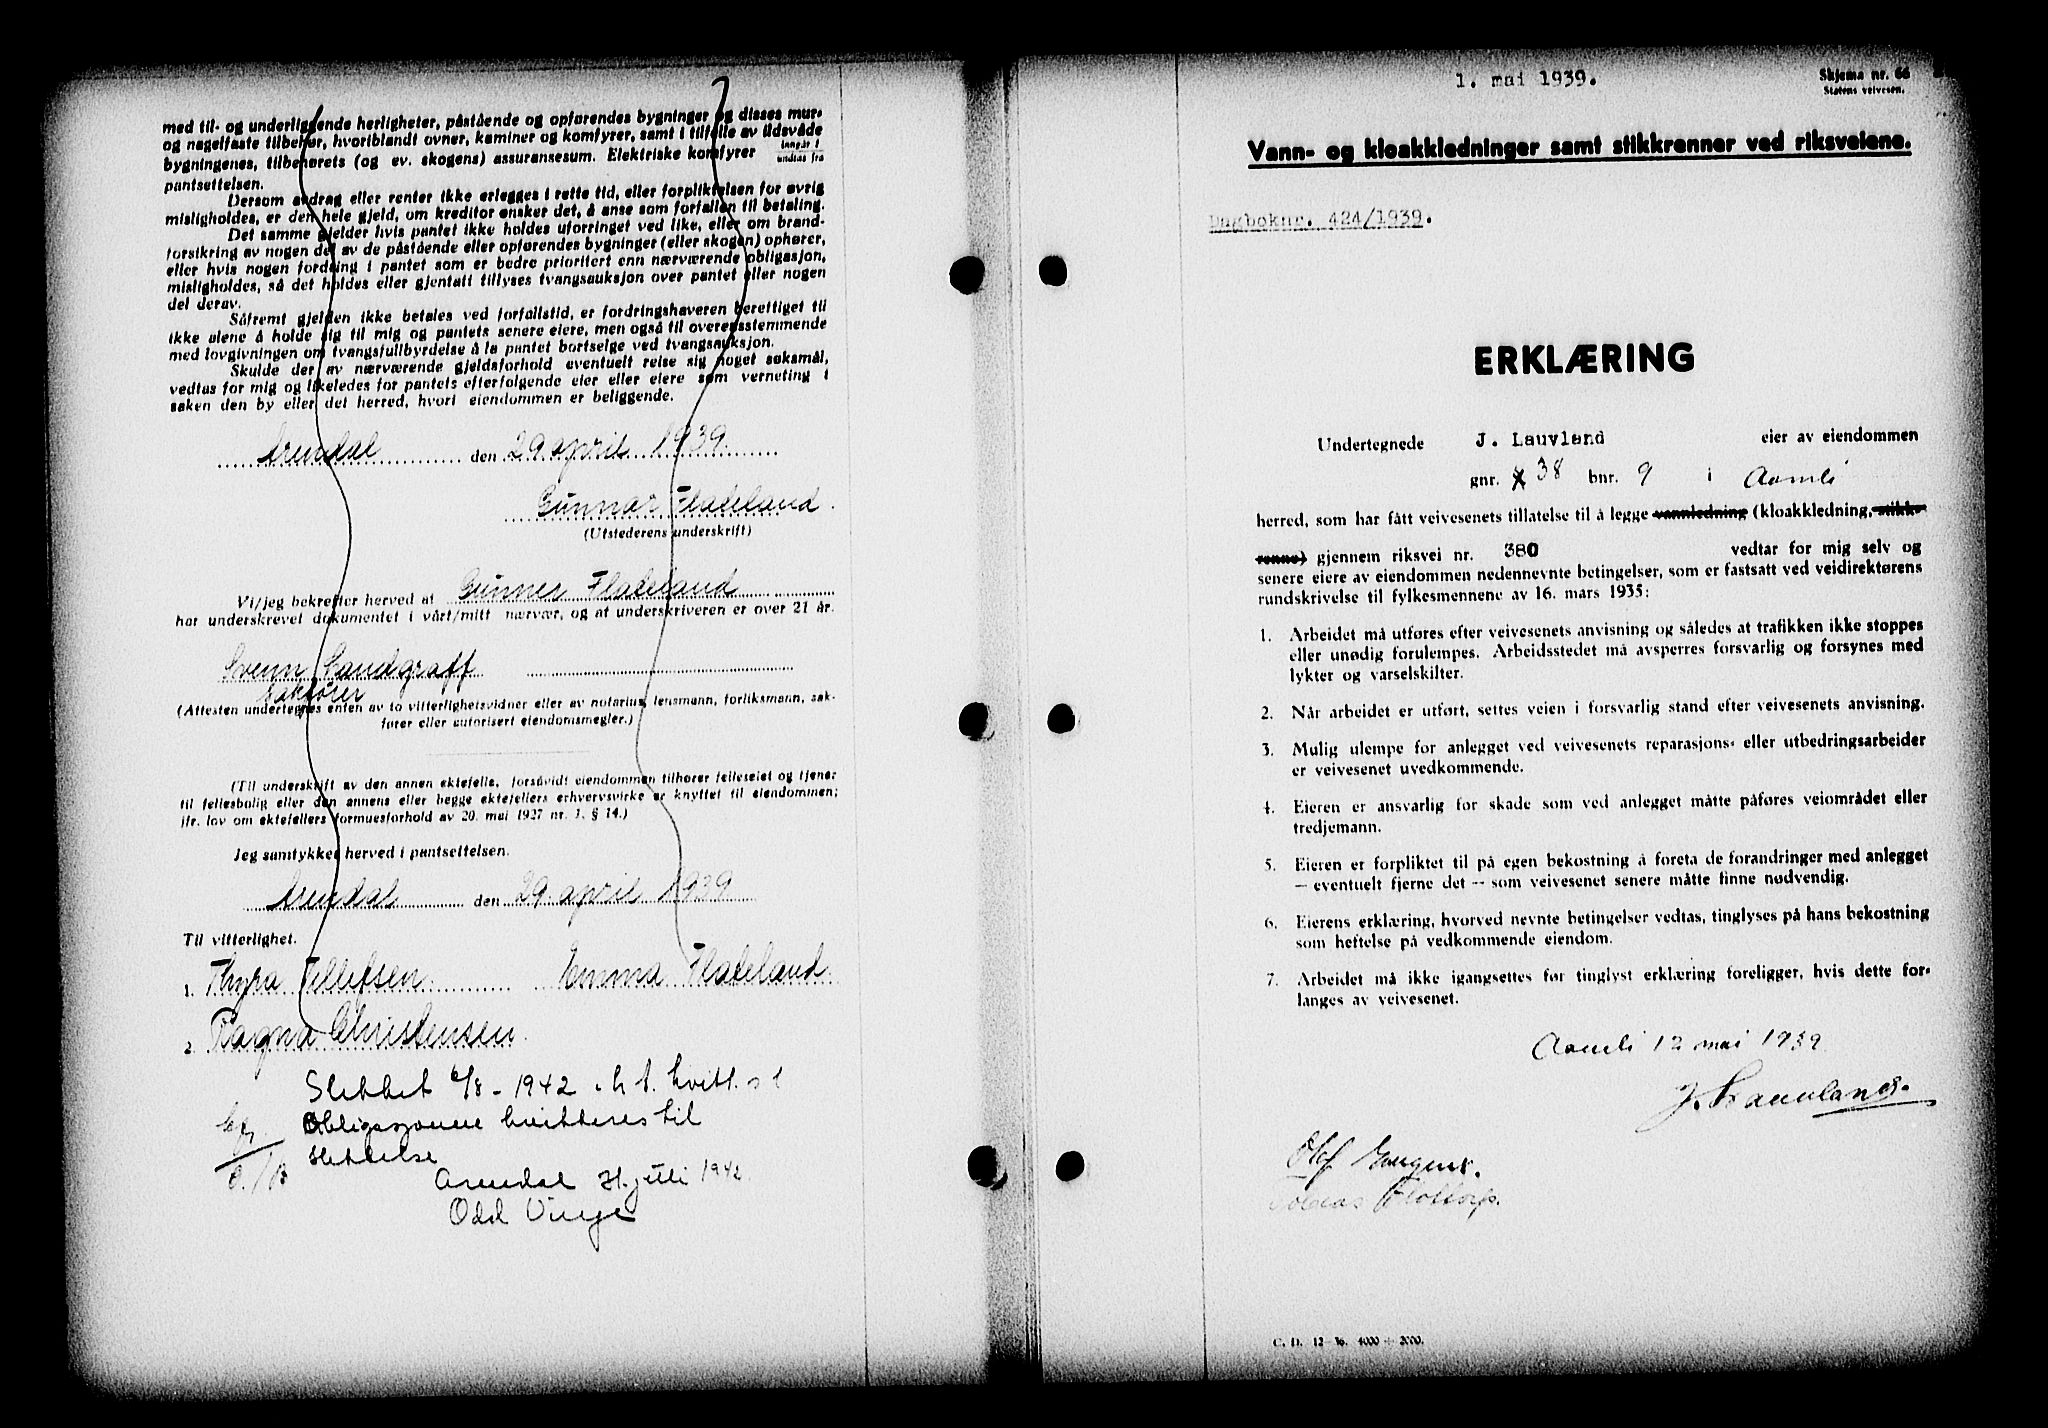 med til- og underliggende herligheter, påstående og opførendes bygninger og disses mur-
og nagelfaste tilbehør, hvoriblandt ovner, kaminer og komfyrer, samt i tilfelle av ildsvåde
bygningenes, tilbehørets (og ev. skogens) assuransesum. Elektriske komfyrer inngår i
undtas fra
pantsettelsen.
Dersom avdrag eller renter ikke erlegges i rette tid, eller forpliktelsen for øvrig
misligholdes, er den hele gjeld, om kreditor ønsker det, å anse som forfallen til betaling.
Det samme gjelder hvis pantet ikke holdes uforringet ved like, eller om brand-
forsikring av nogen del av de påstående eller opførendes bygninger (eller skogen) ophører,
eller hvis nogen fordring i pantet som er bedre prioritert enn nærværende obligasjon,
misligholdes, så det holdes eller gjentatt tillyses tvangsauksjon over pantet eller nogen
del derav.
Såfremt gjelden ikke betales ved forfallstid, er fordringshaveren berettiget til
ikke alene å holde sig til mig og pantets senere eiere, men også til overensstemmende
med lovgivningen om tvangsfullbyrdelse å la pantet bortselge ved tvangsauksjon.
Skulde der av nærværende gjeldsforhold eventuelt reise sig noget søksmål,
vedtas for mig og likeledes for pantets efterfølgende eier eller eiere som verneting i
saken den by eller det herred, hvori eiendommen er beliggende.
Arendal den 29 april 1939.
Gunnar Flateland.
(Utstederens underskrift)
Vi/jeg bekrefter herved at Gunnar Flateland
har underskrevet dokumentet i vårt/mitt nærvær, og at underskriveren er over 21 år.
Svenn Landgraff
sakfører
(Attesten undertegnes enten av to vitterlighetsvidner eller av notarius, lensmann, forliksmann, sak-
fører eller autorisert eiendomsmegler.)
(Til underskrift av den annen ektefelle, forsåvidt eiendommen tilhører felleseiet og tjener
til fellesbolig eller den annens eller begge ektefellers erhvervsvirke er knyttet til eiendommen;
jfr. lov om ektefellers formuesforhold av 20. mai 1927 nr. 1, § 14.)
Jeg samtykker herved i pantsettelsen.
Arendal den 29 april 1939
Til vitterlighet.
1. Thyra Tellefsen Emma Flateland.
2. Ragna Christensen.
Slettet 6/8 - 1942 h. t. kvitt.
Obligasjonen kvitteres til
slettelse
Arendal 31. juli 1942.
Odd Vinje
1. mai 1939.
Skjema nr. 66
Statens veivesen.
Vann- og kloakkledninger samt stikkrenner ved riksveiene.
Dagboknr. 424/1939.
ERKLÆRING
Undertegnede J. Lauvland eier av eiendommen
gnr. 38 bnr. 9 i Aamli
herred, som har fått veivesenets tillatelse til å legge vannledning (kloakkledning, stikk-
renne) gjennem riksvei nr. 380 vedtar for mig selv og
senere eiere av eiendommen nedennevnte betingelser, som er fastsatt ved veidirektørens
rundskrivelse til fylkesmennene av 16. mars 1935:
1. Arbeidet må utføres efter veivesenets anvisning og således at trafikken ikke stoppes
eller unødig forulempes. Arbeidsstedet må avsperres forsvarlig og forsynes med
lykter og varselskilter.
2. Når arbeidet er utført, settes veien i forsvarlig stand efter veivesenets anvisning.
3. Mulig ulempe for anlegget ved veivesenets reparasjons- eller utbedringsarbeider
er veivesenet uvedkommende.
4. Eieren er ansvarlig for skade som ved anlegget måtte påføres veiområdet eller
tredjemann.
5. Eieren er forpliktet til på egen bekostning å foreta de forandringer med anlegget
— eventuelt fjerne det — som veivesenet senere måtte finne nødvendig.
6. Eierens erklæring, hvorved nevnte betingelser vedtas, tinglyses på hans bekostning
som heftelse på vedkommende eiendom.
7. Arbeidet må ikke igangsettes før tinglyst erklæring foreligger, hvis dette for-
langes av veivesenet.
Aamli 12 mai 1939
J. Lauvland.
Olaf
Tobias
C. D. 12-36. 4000 + 2000.